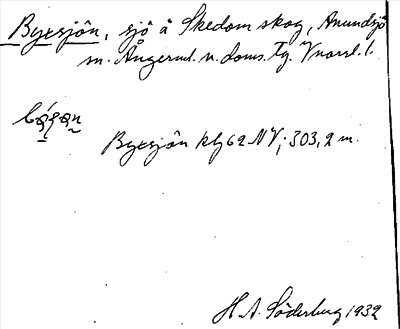 Byxsjön, sjö å Skedom skog, Anundsjö
sn. Ångerml. n. doms. Tg. Vnorrl. l.
Byxsjön kbl 62 NV; 303,2 m.
H. A. Söderberg 1932